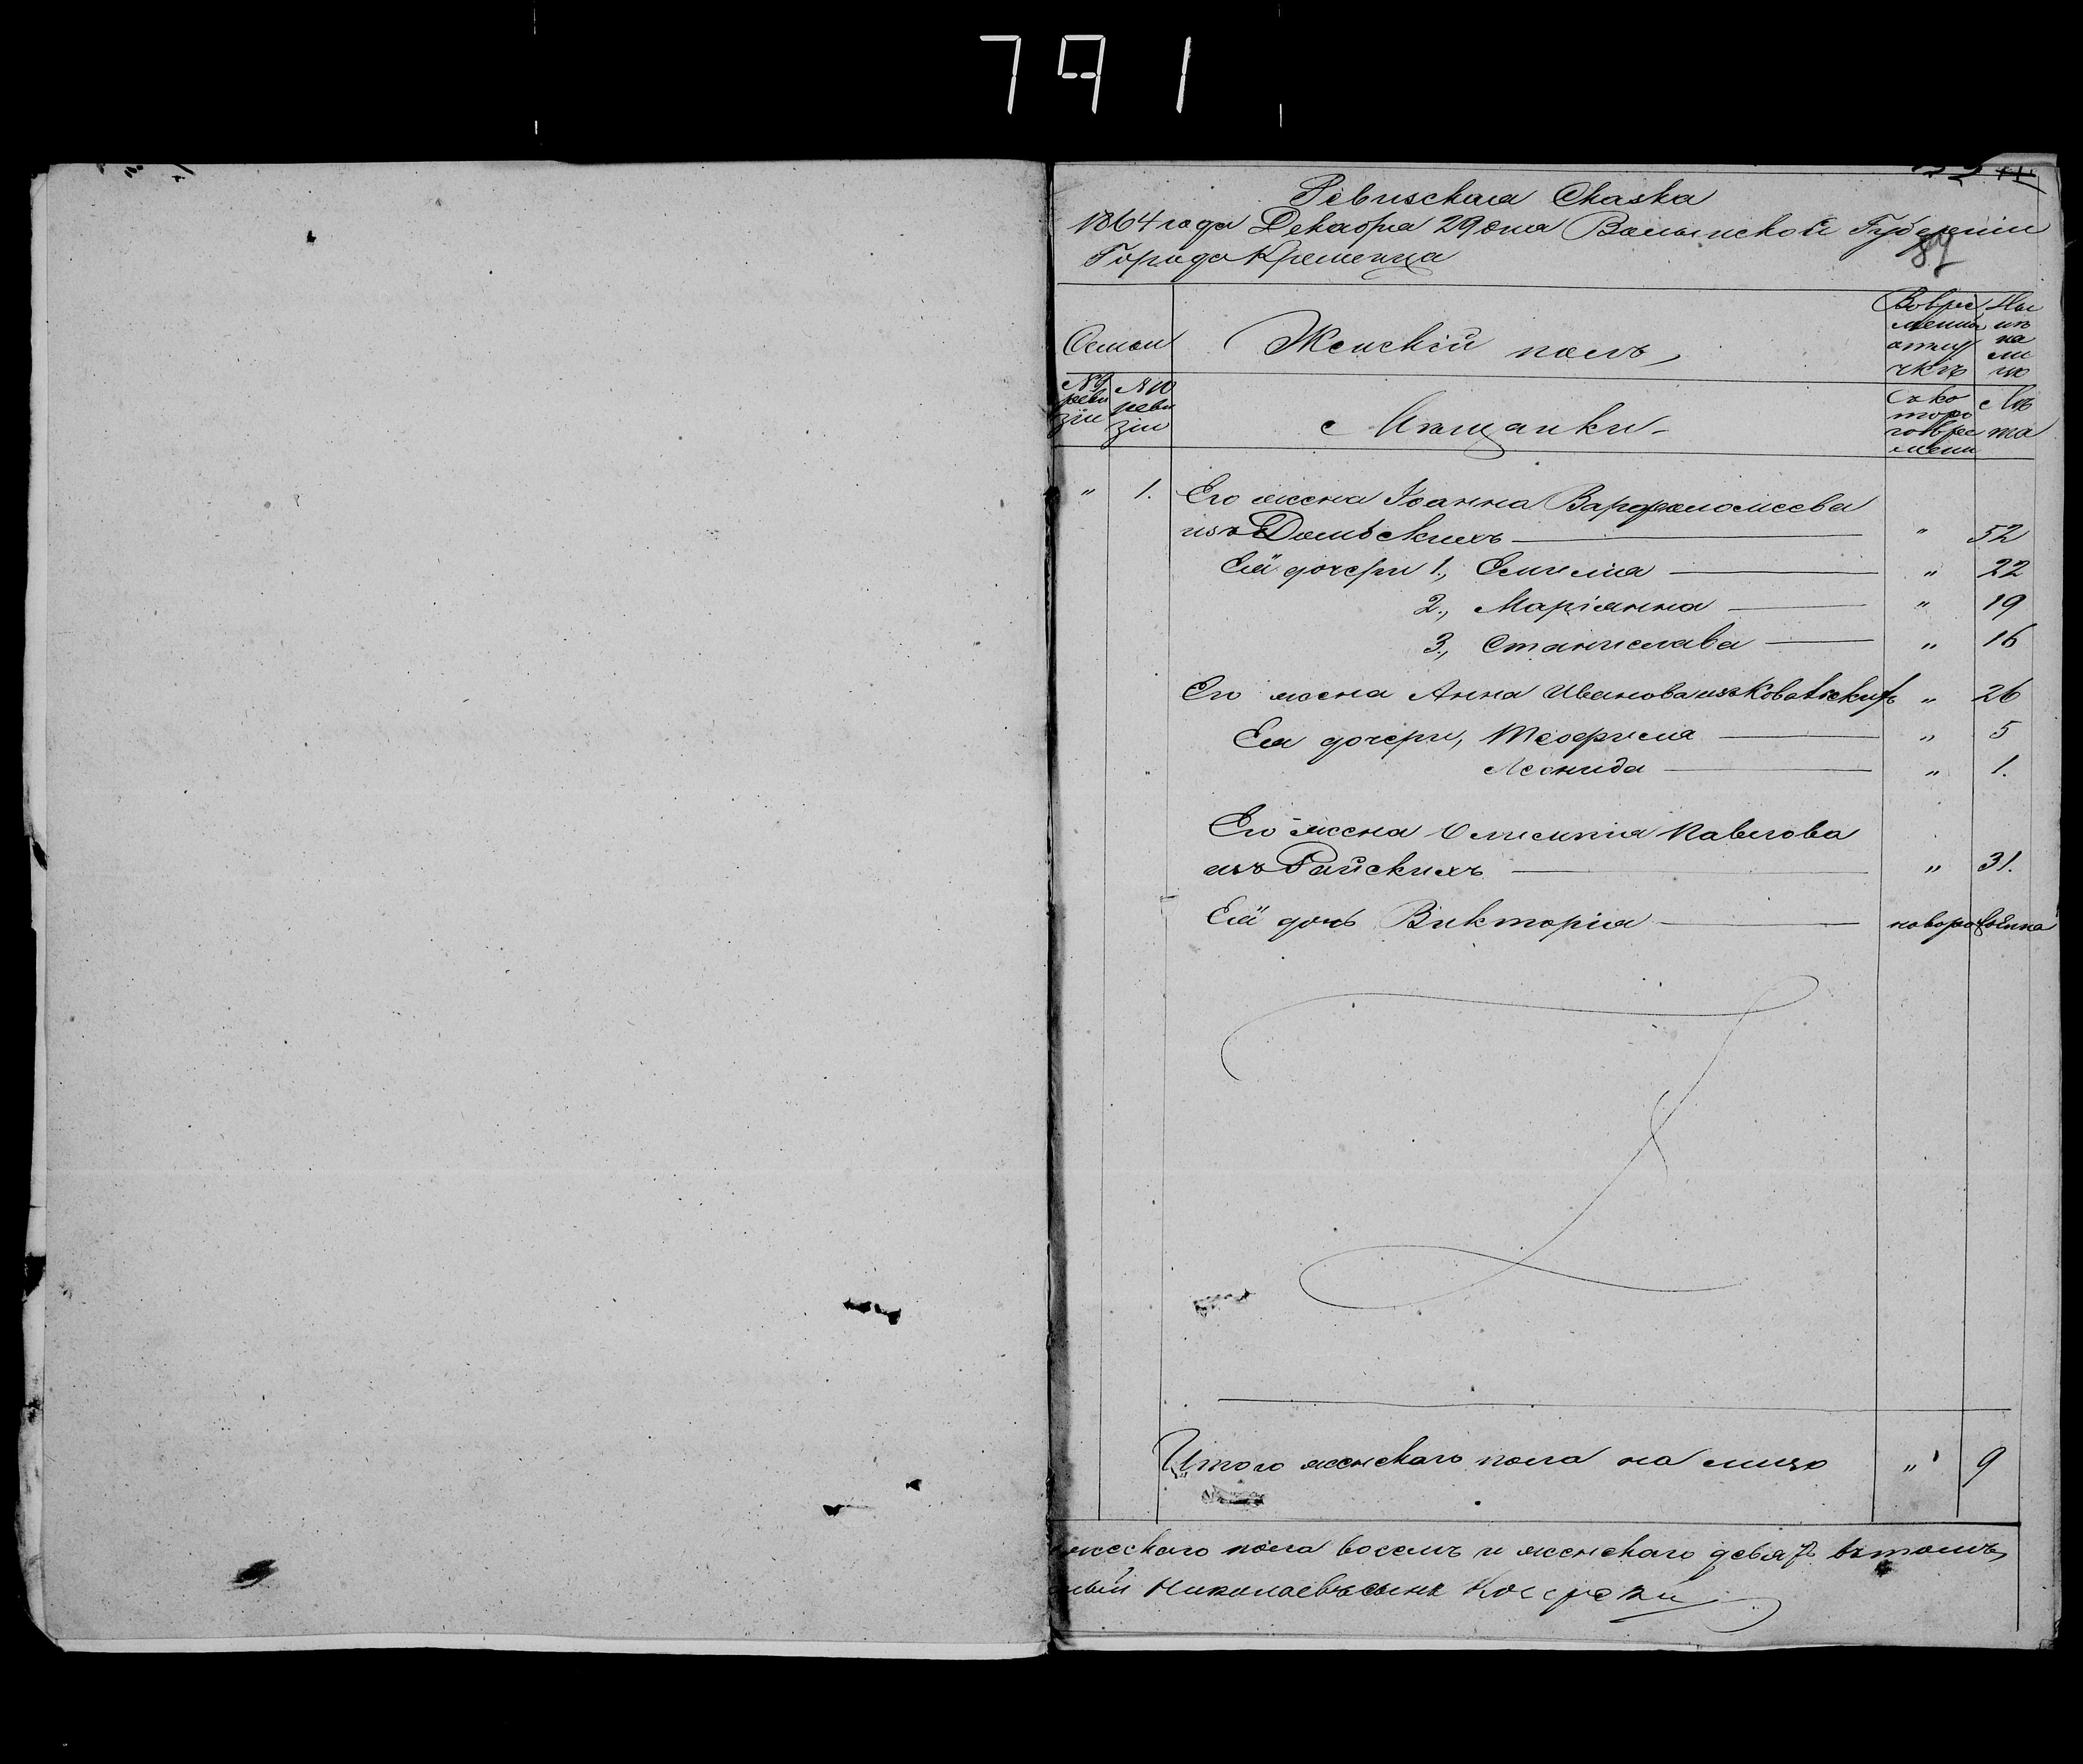 791
Ревизская Сказка
1864 года Декабря 29 дня Волынской Губерніи
Города Кременца
89
Семьи
Женскій полъ
Вовре
менной
отлу
чкѣ
Ны
нѣ
на
ли
цо
№ 9
реви
зіи
№ 10
реви
зіи
Мѣщанки
Съ ко
торо
го вре
мени
Лѣ
та
" 1. Его жена Іоанна Варфоломеева
изъ Домбскихъ — " 52
Ея дочери 1., Емилія — " 22
2., Маріянна — " 19
3., Станислава — " 16
Его жена Анна Иванова изъ Ковальскихъ " 26
Ея дочери, Теофиля — " 5
Леонида — " 1.
Его жена Олимпія Павлова
изъ Райскихъ — " 31.
Ея дочь Викторія — новорожденна
Итого женскаго пола на лицо " 9
мужескаго пола восемъ и женскаго девять въ томъ
Николаевъ сынъ